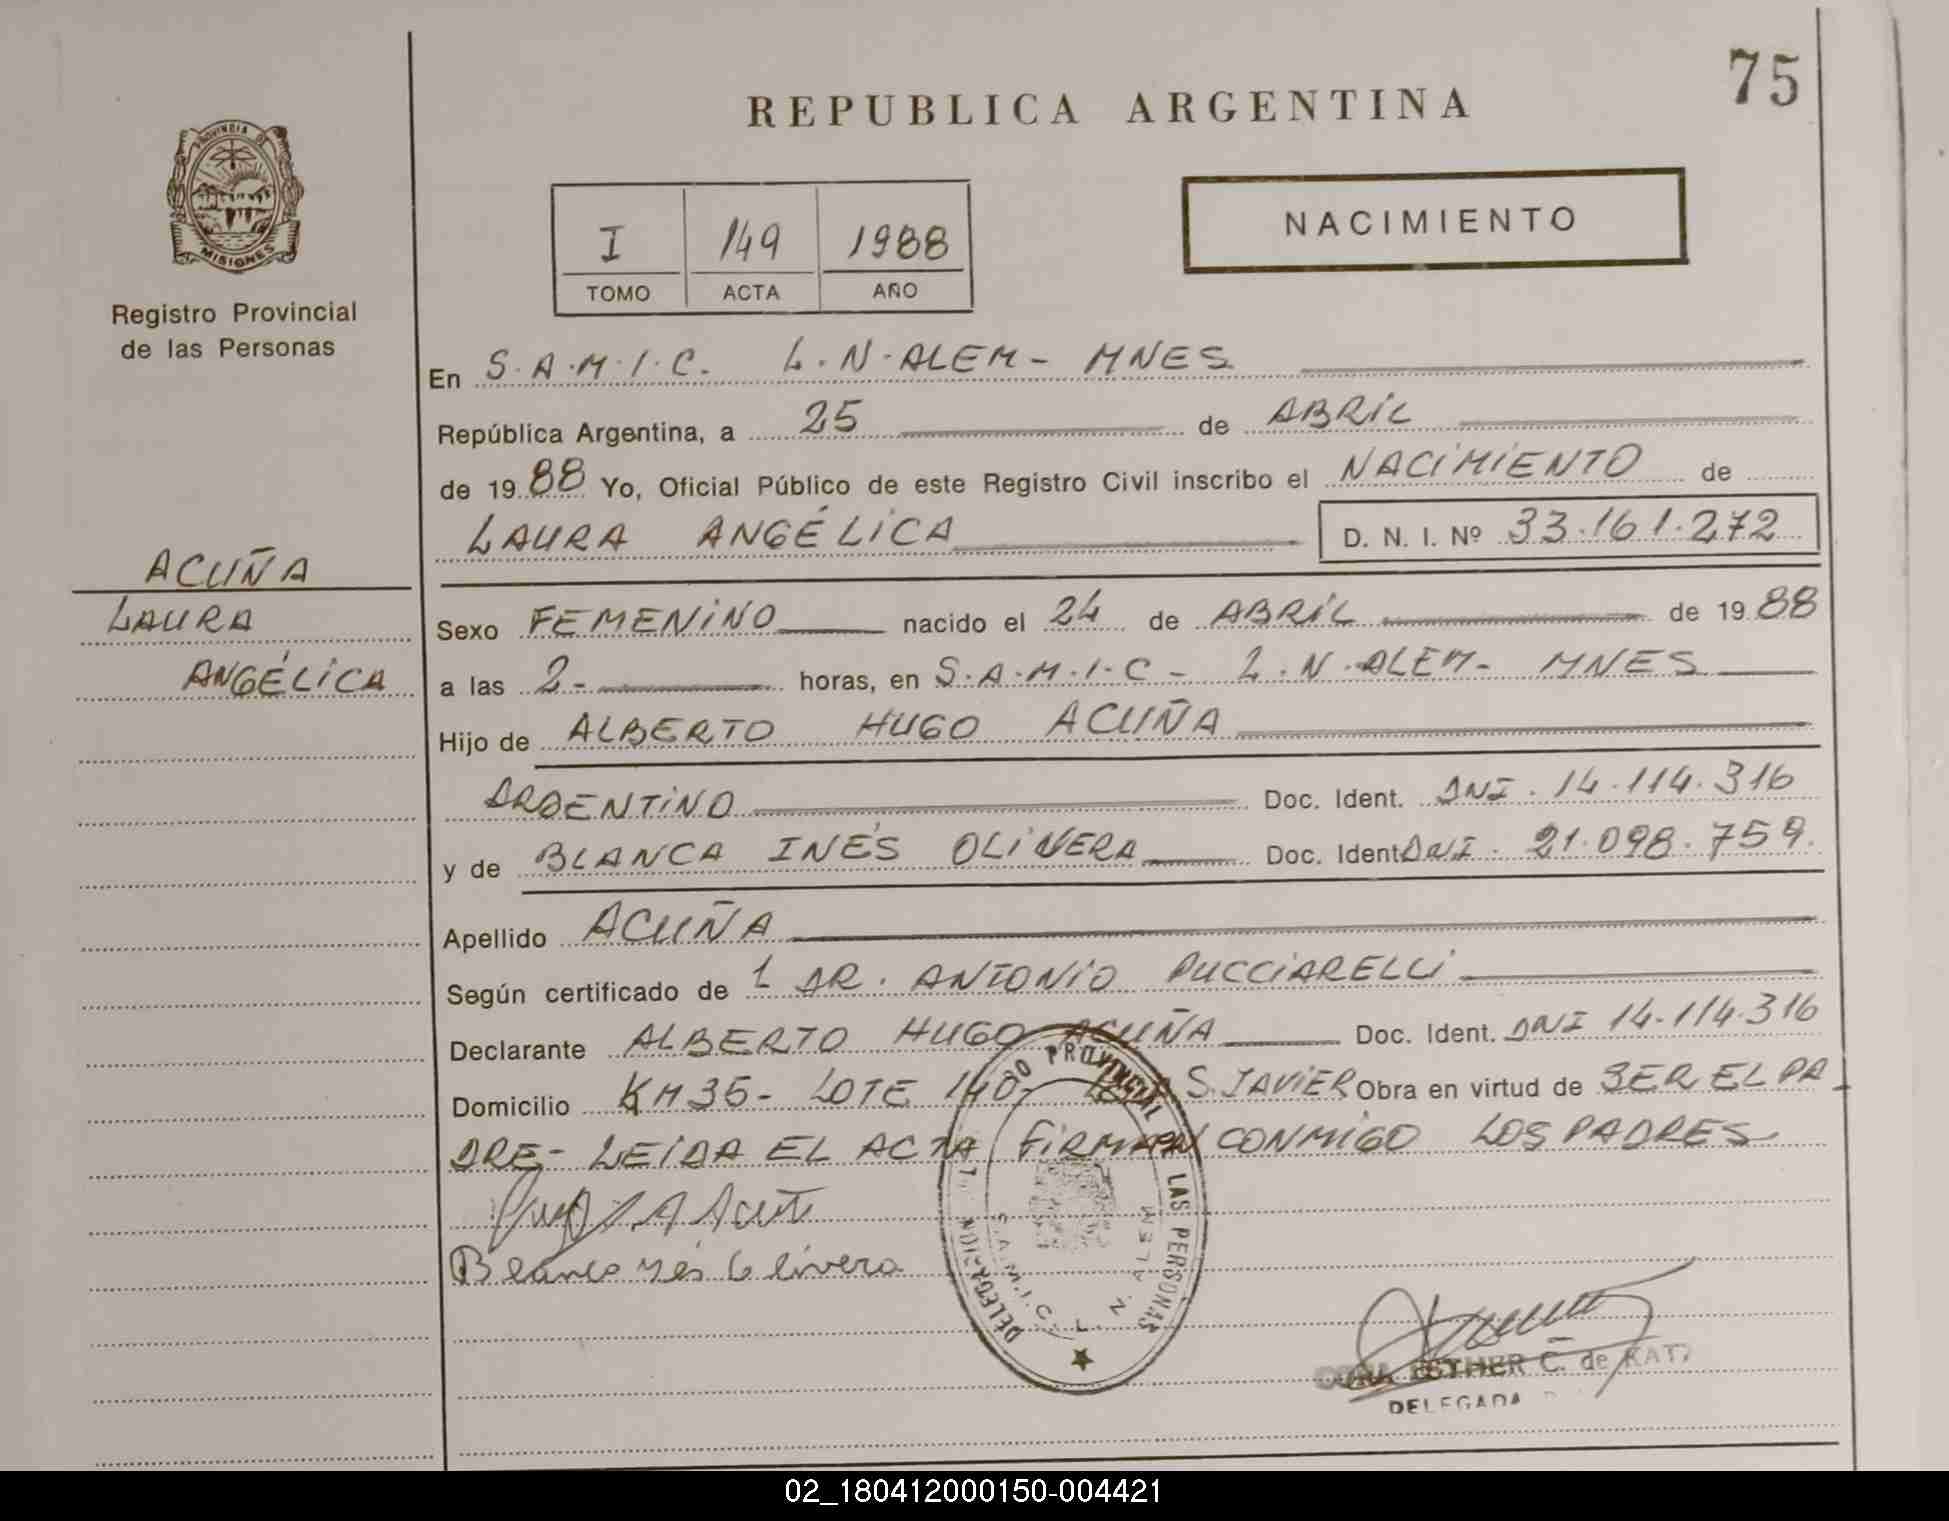 75
REPUBLICA ARGENTINA
PROVINCIA DE
MISIONES
Registro Provincial
de las Personas
I 149 1988
TOMO ACTA AÑO
NACIMIENTO
En S.A.M.I.C. L.N.ALEM- MNES
República Argentina, a 25 de ABRIL
de 1988 Yo, Oficial Público de este Registro Civil inscribo el NACIMIENTO de
LAURA ANGÉLICA D. N. I. Nº 33.161.272
ACUÑA
LAURA
ANGÉLICA
Sexo FEMENINO nacido el 24 de ABRIL de 1988
a las 2- horas, en S.A.M.I.C- L.N.ALEM- MNES
Hijo de ALBERTO HUGO ACUÑA
ARGENTINO Doc. Ident. DNI. 14.114.316
y de BLANCA INÉS OLIVERA Doc. Ident. DNI. 21.098.759.
Apellido ACUÑA
Según certificado de 1 DR. ANTONIO PUCCIARELLI
Declarante ALBERTO HUGO ACUÑA Doc. Ident. DNI 14.114.316
Domicilio KM 35- LOTE 140- S. JAVIER Obra en virtud de SER EL PA-
DRE- LEIDA EL ACTA FIRMAN CONMIGO LOS PADRES
Blanca Inés Olivera
PROVINCIAL
LAS PERSONAS
DELEGACION
S.A.M.I.C. L. N. ALEM
ESTHER C. de KATZ
DELEGADA
02_180412000150-004421